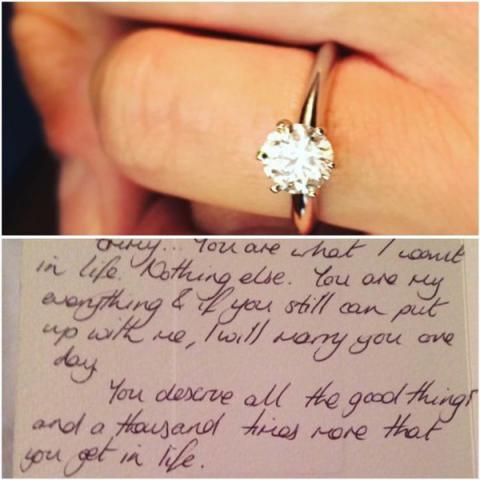 You are what I want
in life. Nothing else. You are my
everything & if you still can put
up with me, I will marry you one
day
You deserve all the good things
and a thousand times more that
you get in life.